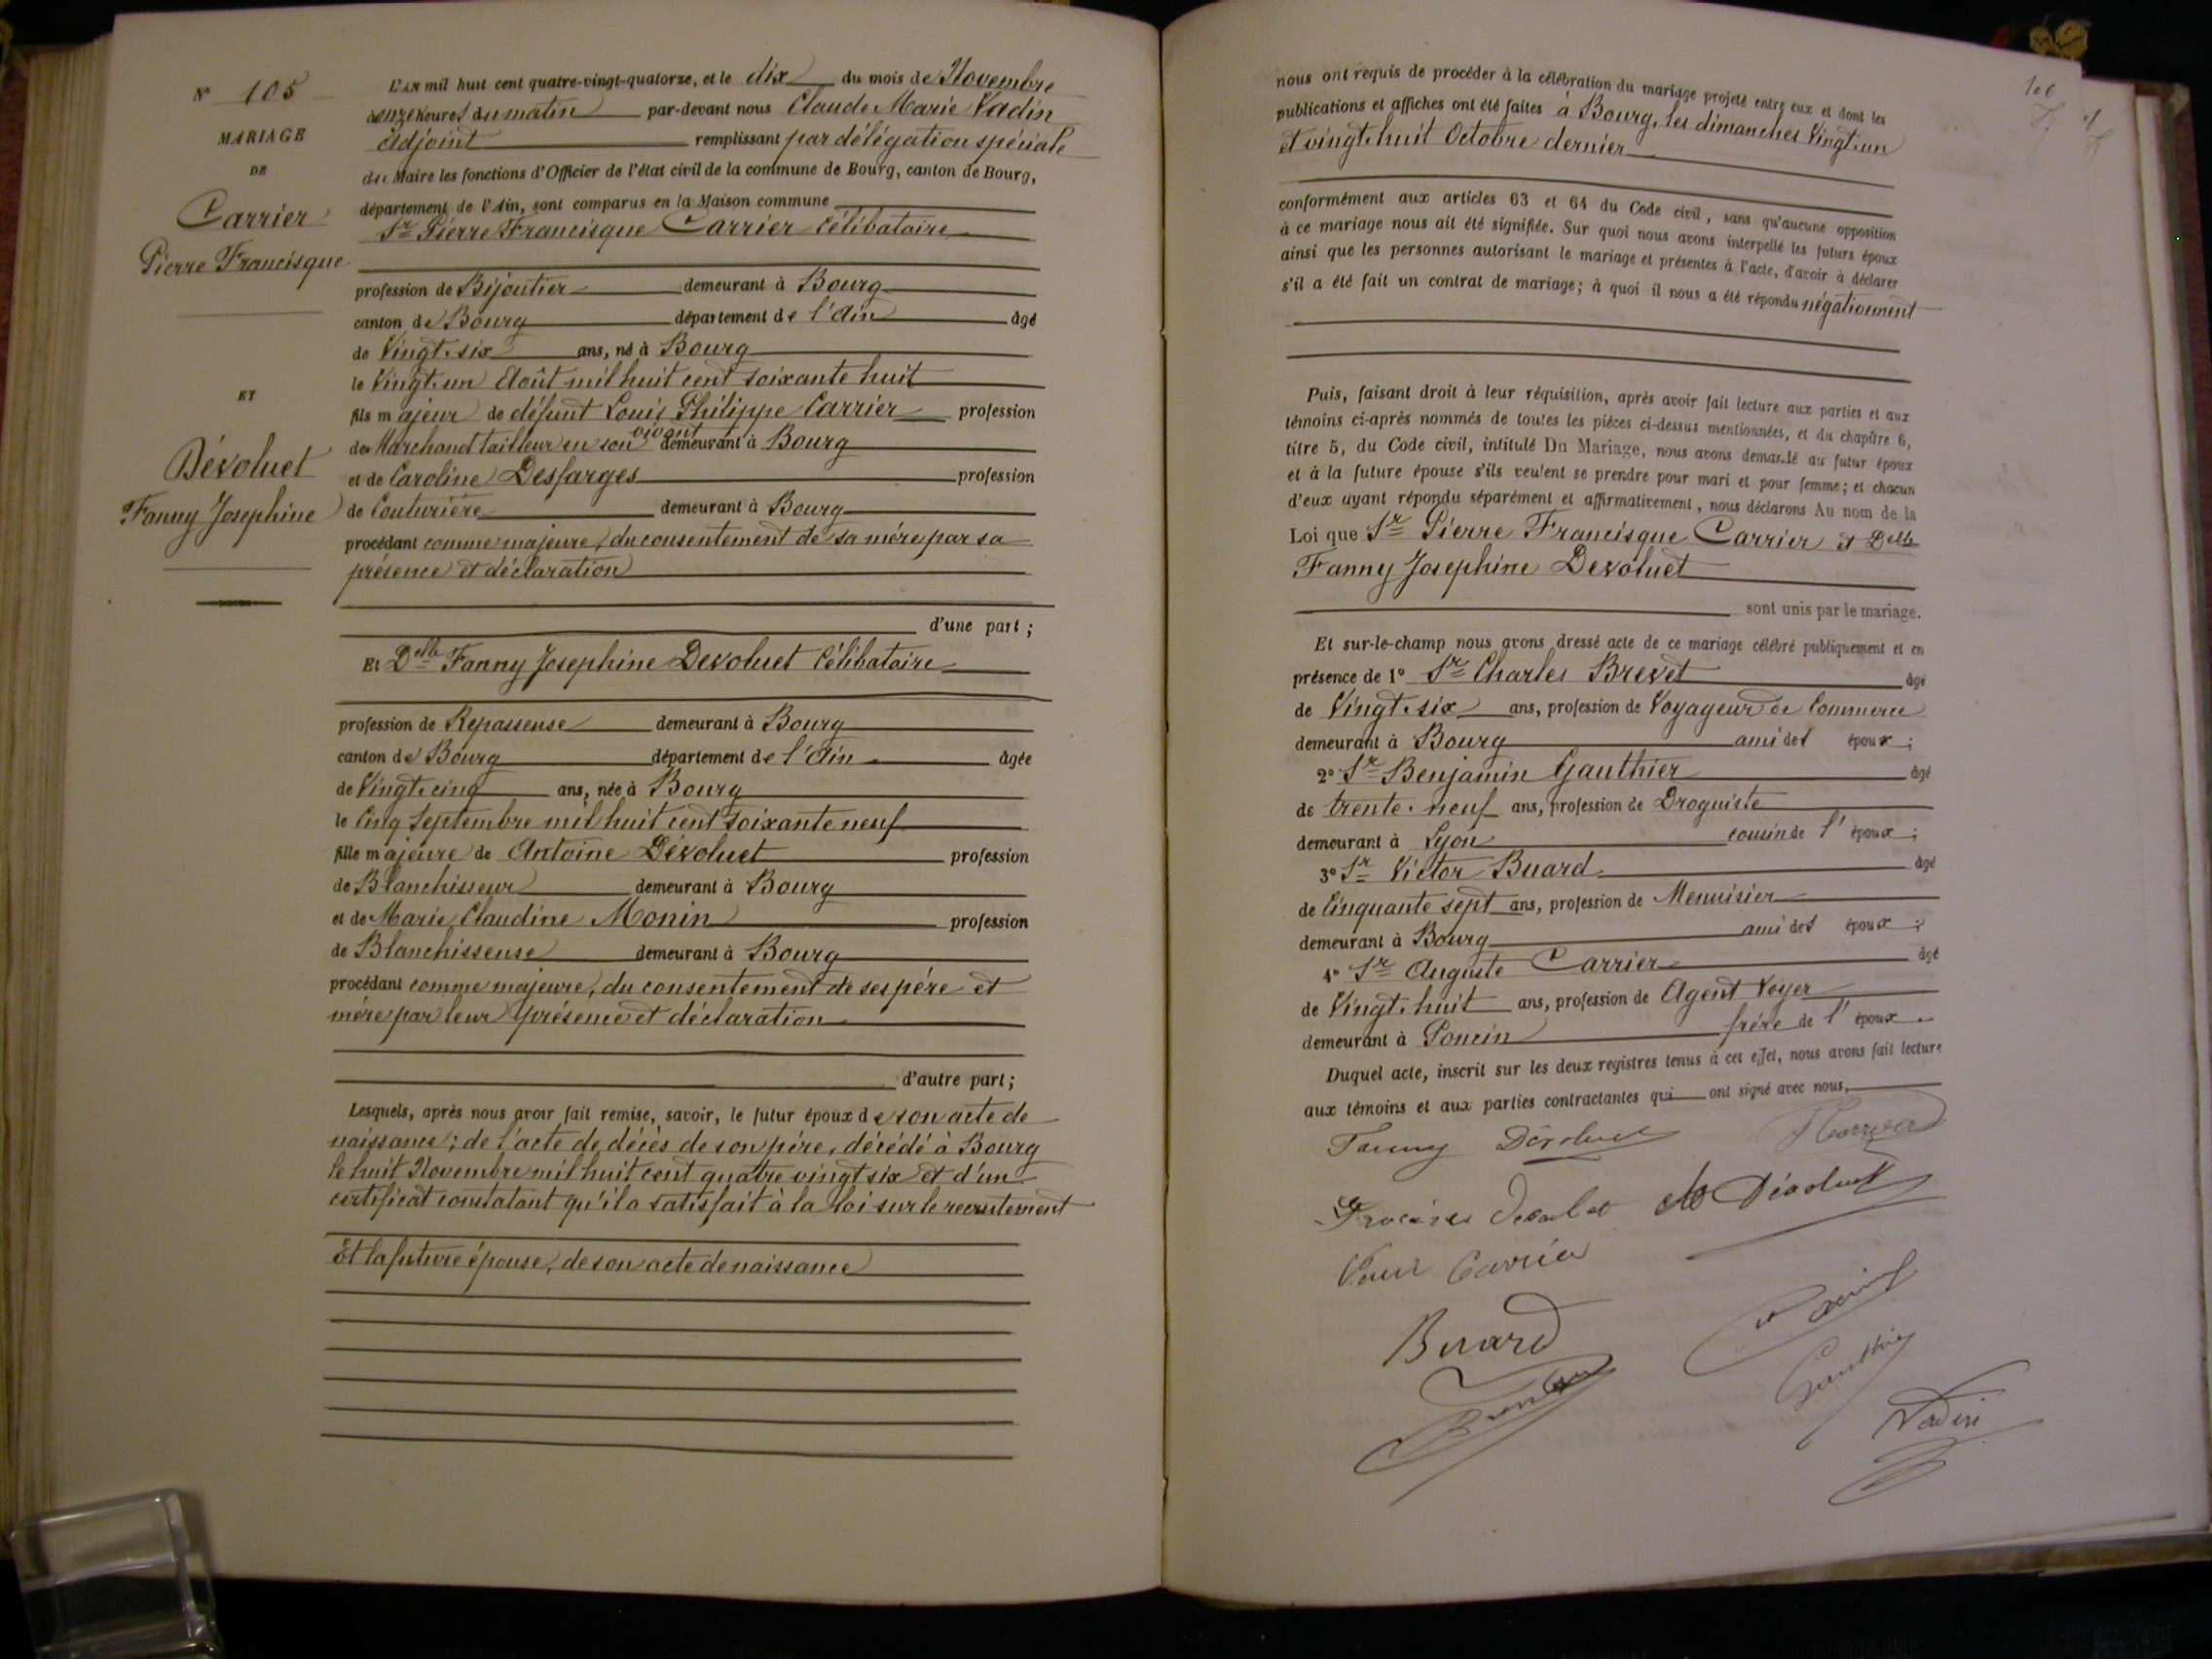 N° 105
MARIAGE
DE
Carrier
Pierre Francisque
ET
Dévoluet
Fanny Josephine
L'AN mil huit cent quatre-vingt-quatorze, et le dix du mois de Novembre
onze heures du matin par-devant nous Claude Marie Vadin
Adjoint remplissant par délégation spéciale
du Maire les fonctions d'Officier de l'état civil de la commune de Bourg, canton de Bourg,
département de l'Ain, sont comparus en la Maison commune
Sr Pierre Francisque Carrier célibataire
profession de Bijoutier demeurant à Bourg
canton de Bourg département de l'Ain âgé
de Vingt-six ans, né à Bourg
le Vingt-un Août mil huit cent soixante huit
fils majeur de défunt Louis Philippe Carrier profession
de Marchand tailleur en son vivant demeurant à Bourg
et de Caroline Desfarges profession
de Couturière demeurant à Bourg
procédant comme majeure, du consentement de sa mère par sa
présence et déclaration
d'une part ;
Et Delle Fanny Josephine Devoluet Célibataire
profession de Repasseuse demeurant à Bourg
canton de Bourg département de l'Ain âgée
de Vingt-cinq ans, née à Bourg
le Cinq Septembre mil huit cent soixante neuf
fille majeure de Antoine Dévoluet profession
de Blanchisseur demeurant à Bourg
et de Marie Claudine Monin profession
de Blanchisseuse demeurant à Bourg
procédant comme majeure, du consentement de ses père et
mère par leur présence et déclaration
d'autre part ;
Lesquels, après nous avoir fait remise, savoir, le futur époux de son acte de
naissance ; de l'acte de décès de son père, décédé à Bourg
le huit Novembre mil huit cent quatre vingt six et d'un
certificat constatant qu'il a satisfait à la loi sur le recrutement
Et la future épouse, de son acte de naissance
106
nous ont requis de procéder à la célébration du mariage projeté entre eux et dont les
publications et affiches ont été faites à Bourg, les dimanches Vingt-un
et vingt-huit Octobre dernier
conformément aux articles 63 et 64 du Code civil, sans qu'aucune opposition
à ce mariage nous ait été signifiée. Sur quoi nous avons interpellé les futurs époux
ainsi que les personnes autorisant le mariage et présentes à l'acte, d'avoir à déclarer
s'il a été fait un contrat de mariage ; à quoi il nous a été répondu négativement
Puis, faisant droit à leur réquisition, après avoir fait lecture aux parties et aux
témoins ci-après nommés de toutes les pièces ci-dessus mentionnées, et du chapitre 6,
titre 5, du Code civil, intitulé Du Mariage, nous avons demandé au futur époux
et à la future épouse s'ils veulent se prendre pour mari et pour femme ; et chacun
d'eux ayant répondu séparément et affirmativement, nous déclarons Au nom de la
Loi que Sr Pierre Francisque Carrier et Delle
Fanny Josephine Devoluet
sont unis par le mariage.
Et sur-le-champ nous avons dressé acte de ce mariage célébré publiquement et en
présence de 1° Sr Charles Brevet âgé
de Vingt-six ans, profession de Voyageur de Commerce
demeurant à Bourg ami des époux ;
2° Sr Benjamin Gauthier âgé
de trente-neuf ans, profession de Droguiste
demeurant à Lyon cousin de l'époux ;
3° Sr Victor Buard âgé
de Cinquante sept ans, profession de Menuisier
demeurant à Bourg ami des époux ;
4° Sr Auguste Carrier âgé
de Vingt-huit ans, profession de Agent Voyer
demeurant à Poncin frère de l'époux.
Duquel acte, inscrit sur les deux registres tenus à cet effet, nous avons fait lecture
aux témoins et aux parties contractantes qui ont signé avec nous,
Fanny Dévoluet
Dévoluet
Carrier
Buard
Gauthier
Vadin